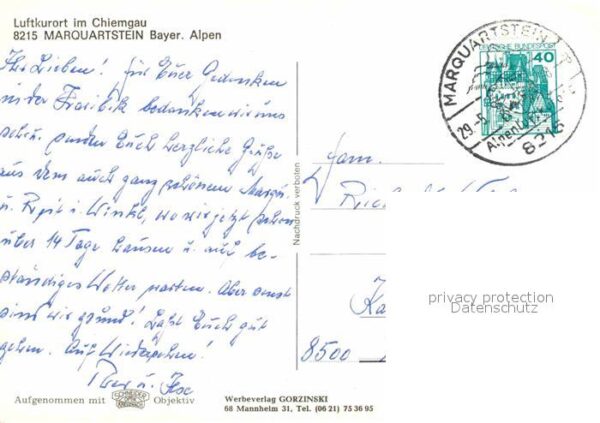 Luftkurort im Chiemgau
8215 MARQUARTSTEIN Bayer. Alpen
Ihr Lieben! für Euer Gedenken
in der bedanken wir uns
schön. senden Euch herzliche Grüße
aus dem auch ganz schönem
u. u. Winkl, wo wir jetzt schon
über 14 Tage hausen u. auf be-
ständiges Wetter warten. Aber sonst
sind wir gesund! Laßt Euch gut
gehen. Auf Wiedersehen!
u.
Aufgenommen mit Objektiv
Nachdruck verboten
Werbeverlag GORZINSKI
68 Mannheim 31, Tel. (06 21) 75 36 95
MARQUARTSTEIN
29.-6
8215
DEUTSCHE BUNDESPOST
40
Fam.
privacy protection
Datenschutz
8500